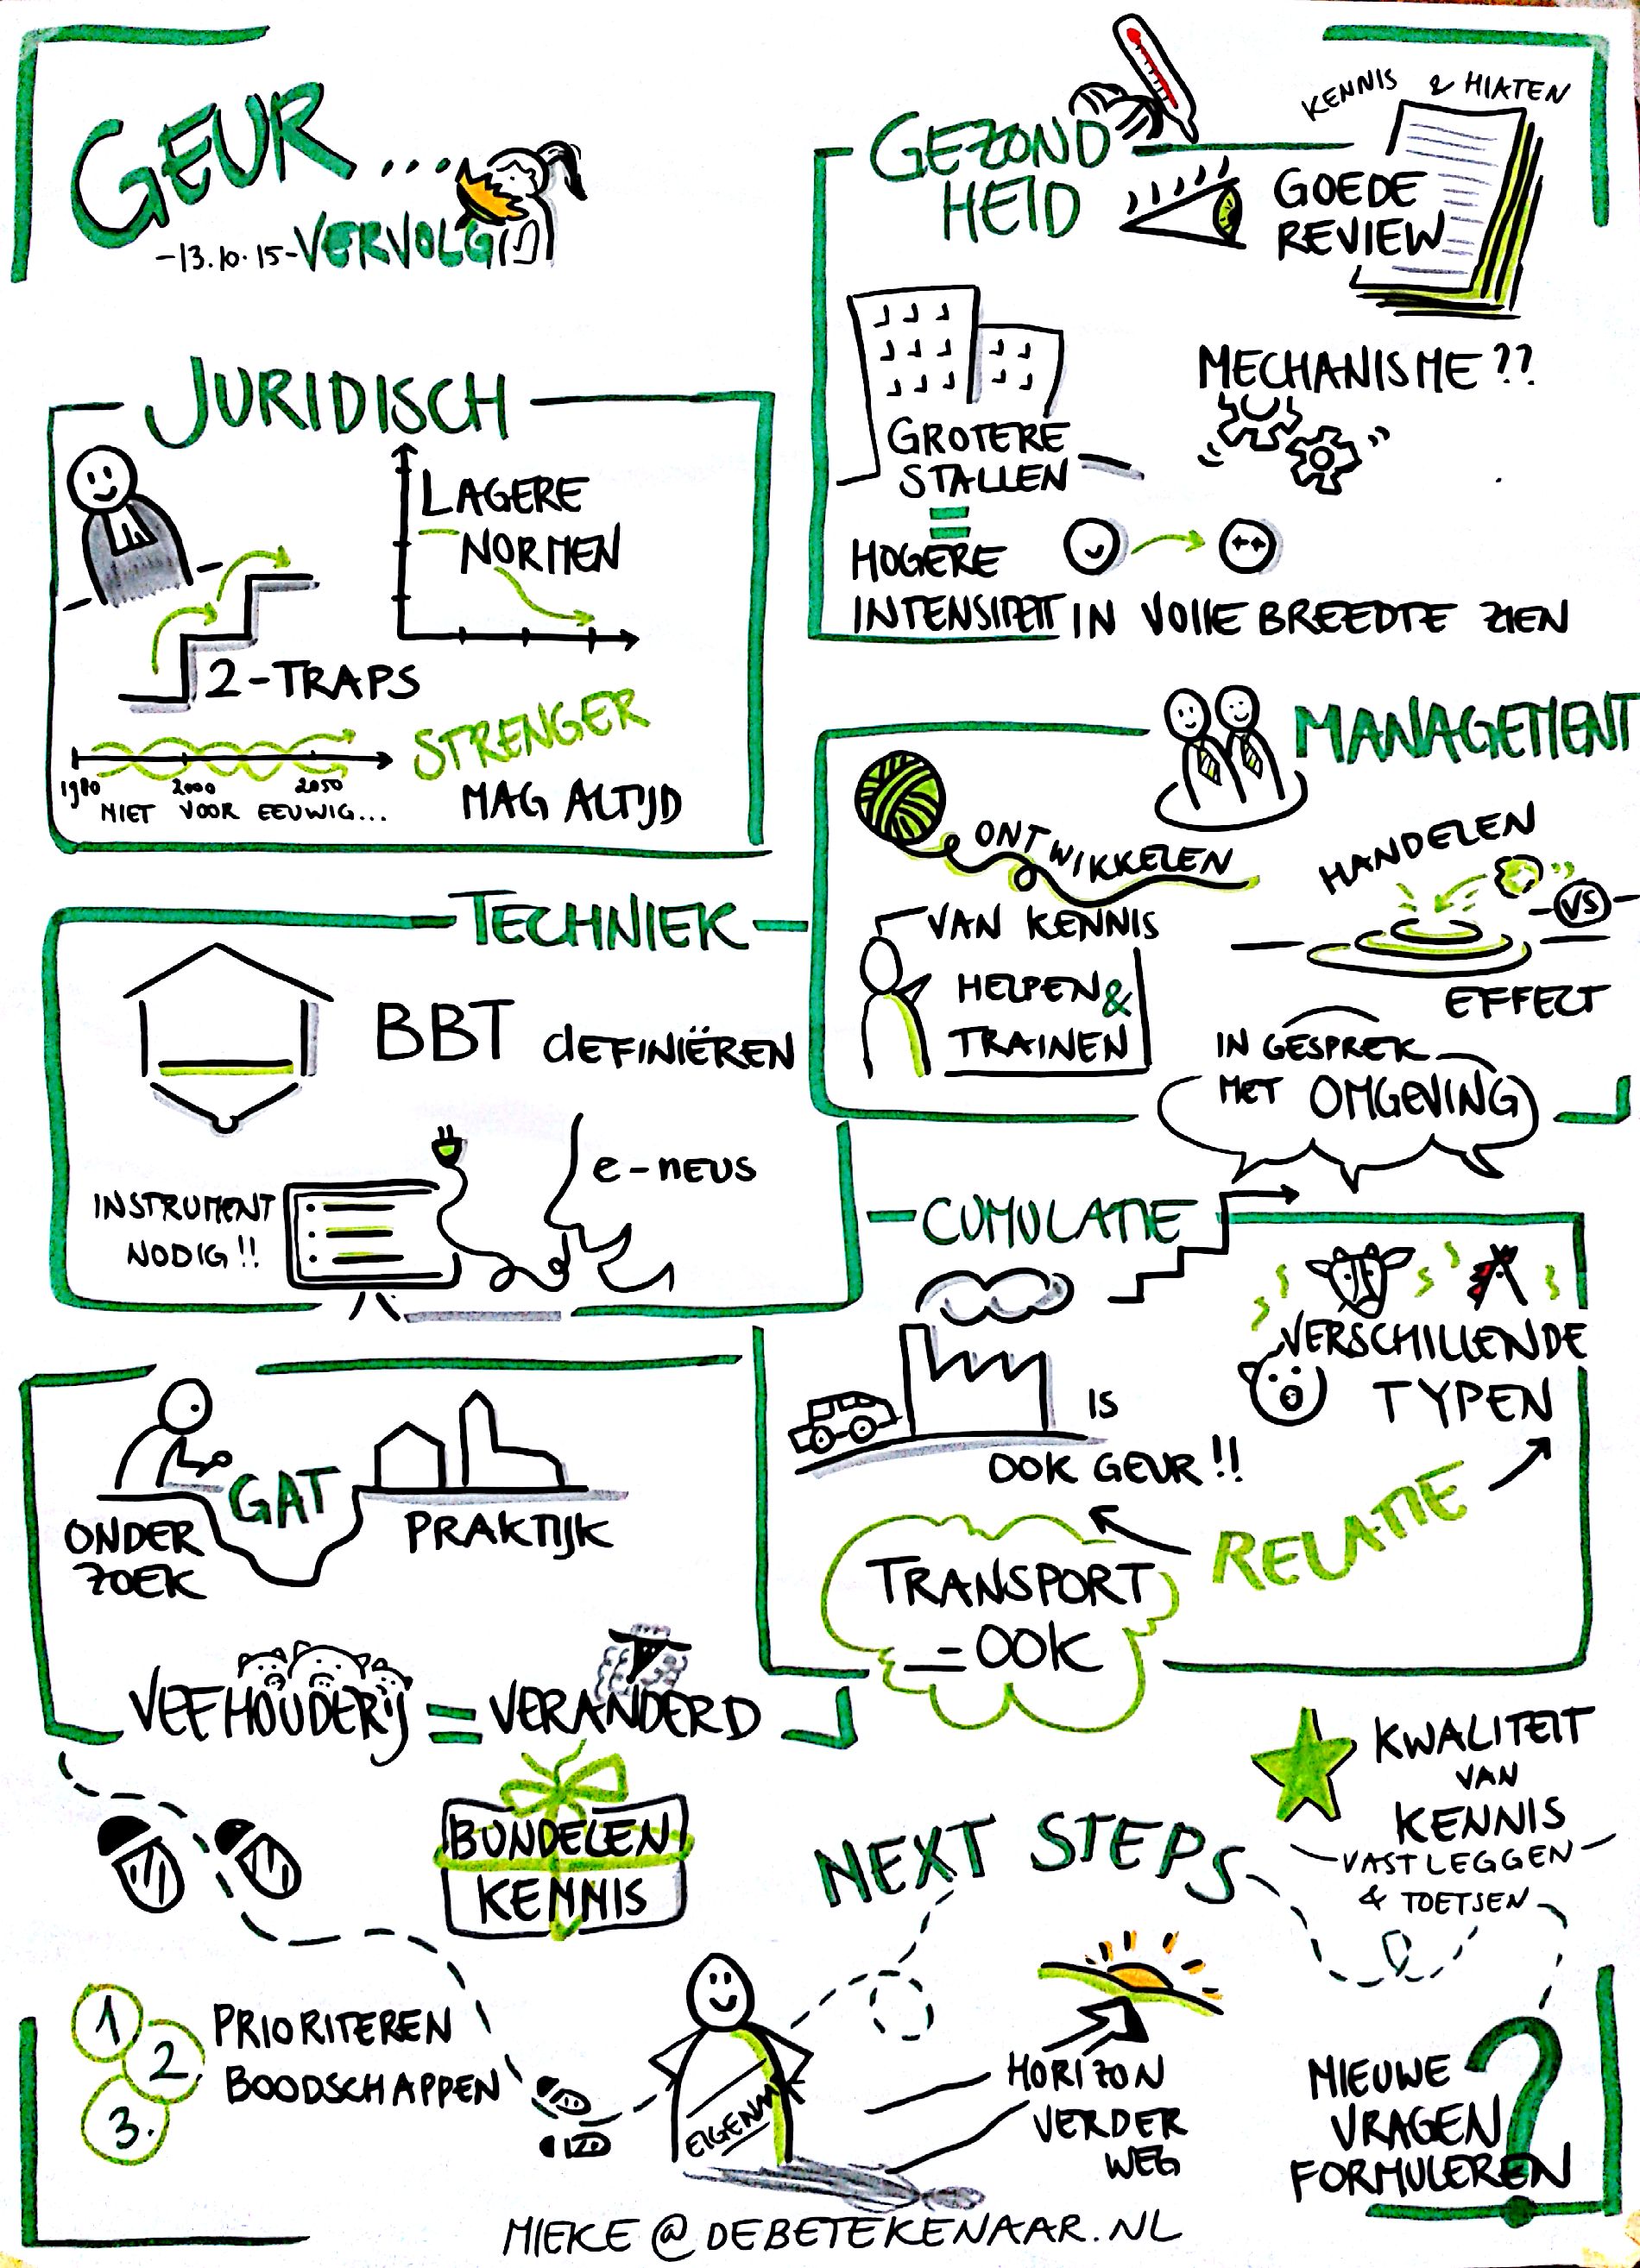 GEUR...
-13.10.15-VERVOLG
JURIDISCH
LAGERE
NORMEN
2-TRAPS
1980 2000 2050
NIET VOOR EEUWIG...
STRENGER
MAG ALTIJD
TECHNIEK
BBT dEFINIËREN
INSTRUMENT
NODIG!!
e-NEUS
GAT
ONDER
ZOEK
PRAKTIJK
VEEHOUDERIJ = VERANDERD
GEZOND
HEID
KENNIS & HIATEN
GOEDE
REVIEW
GROTERE
STALLEN
=
HOGERE
INTENSITEIT
MECHANISME??
IN VOLLE BREEDTE ZIEN
MANAGEMENT
ONTWIKKELEN
VAN KENNIS
HELPEN &
TRAINEN
HANDELEN
VS
EFFECT
IN GESPREK
MET OMGEVING
CUMULATIE
IS
OOK GEUR!!
VERSCHILLENDE
TYPEN
RELATIE
TRANSPORT
=OOK
BUNDELEN
KENNIS
NEXT STEPS
KWALITEIT
VAN
KENNIS
-VASTLEGGEN-
& TOETSEN
1 PRIORITEREN
2 BOODSCHAPPEN
3.
HORIZON
VERDER
WEG
NIEUWE
VRAGEN
FORMULEREN
?
MIEKE@DEBETEKENAAR.NL